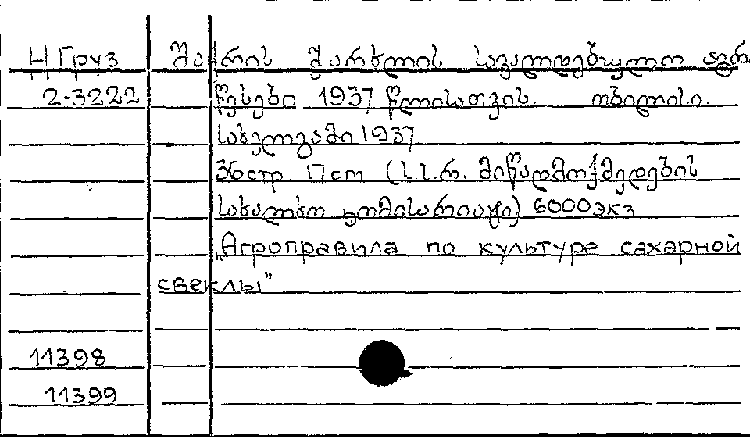 Н Груз შაქრის ჭარხლის სავალდებულო აგრ.
2-3222 წესები 1937 წლისათვის. თბილისი.
სახელგამი 1937
36стр 17cm (ს.ს.რ. მიწადმოქმედების
სახალხო კომისარიატი) 6000экз
„Агроправила по культуре сахарной
свеклы"
11398
11399